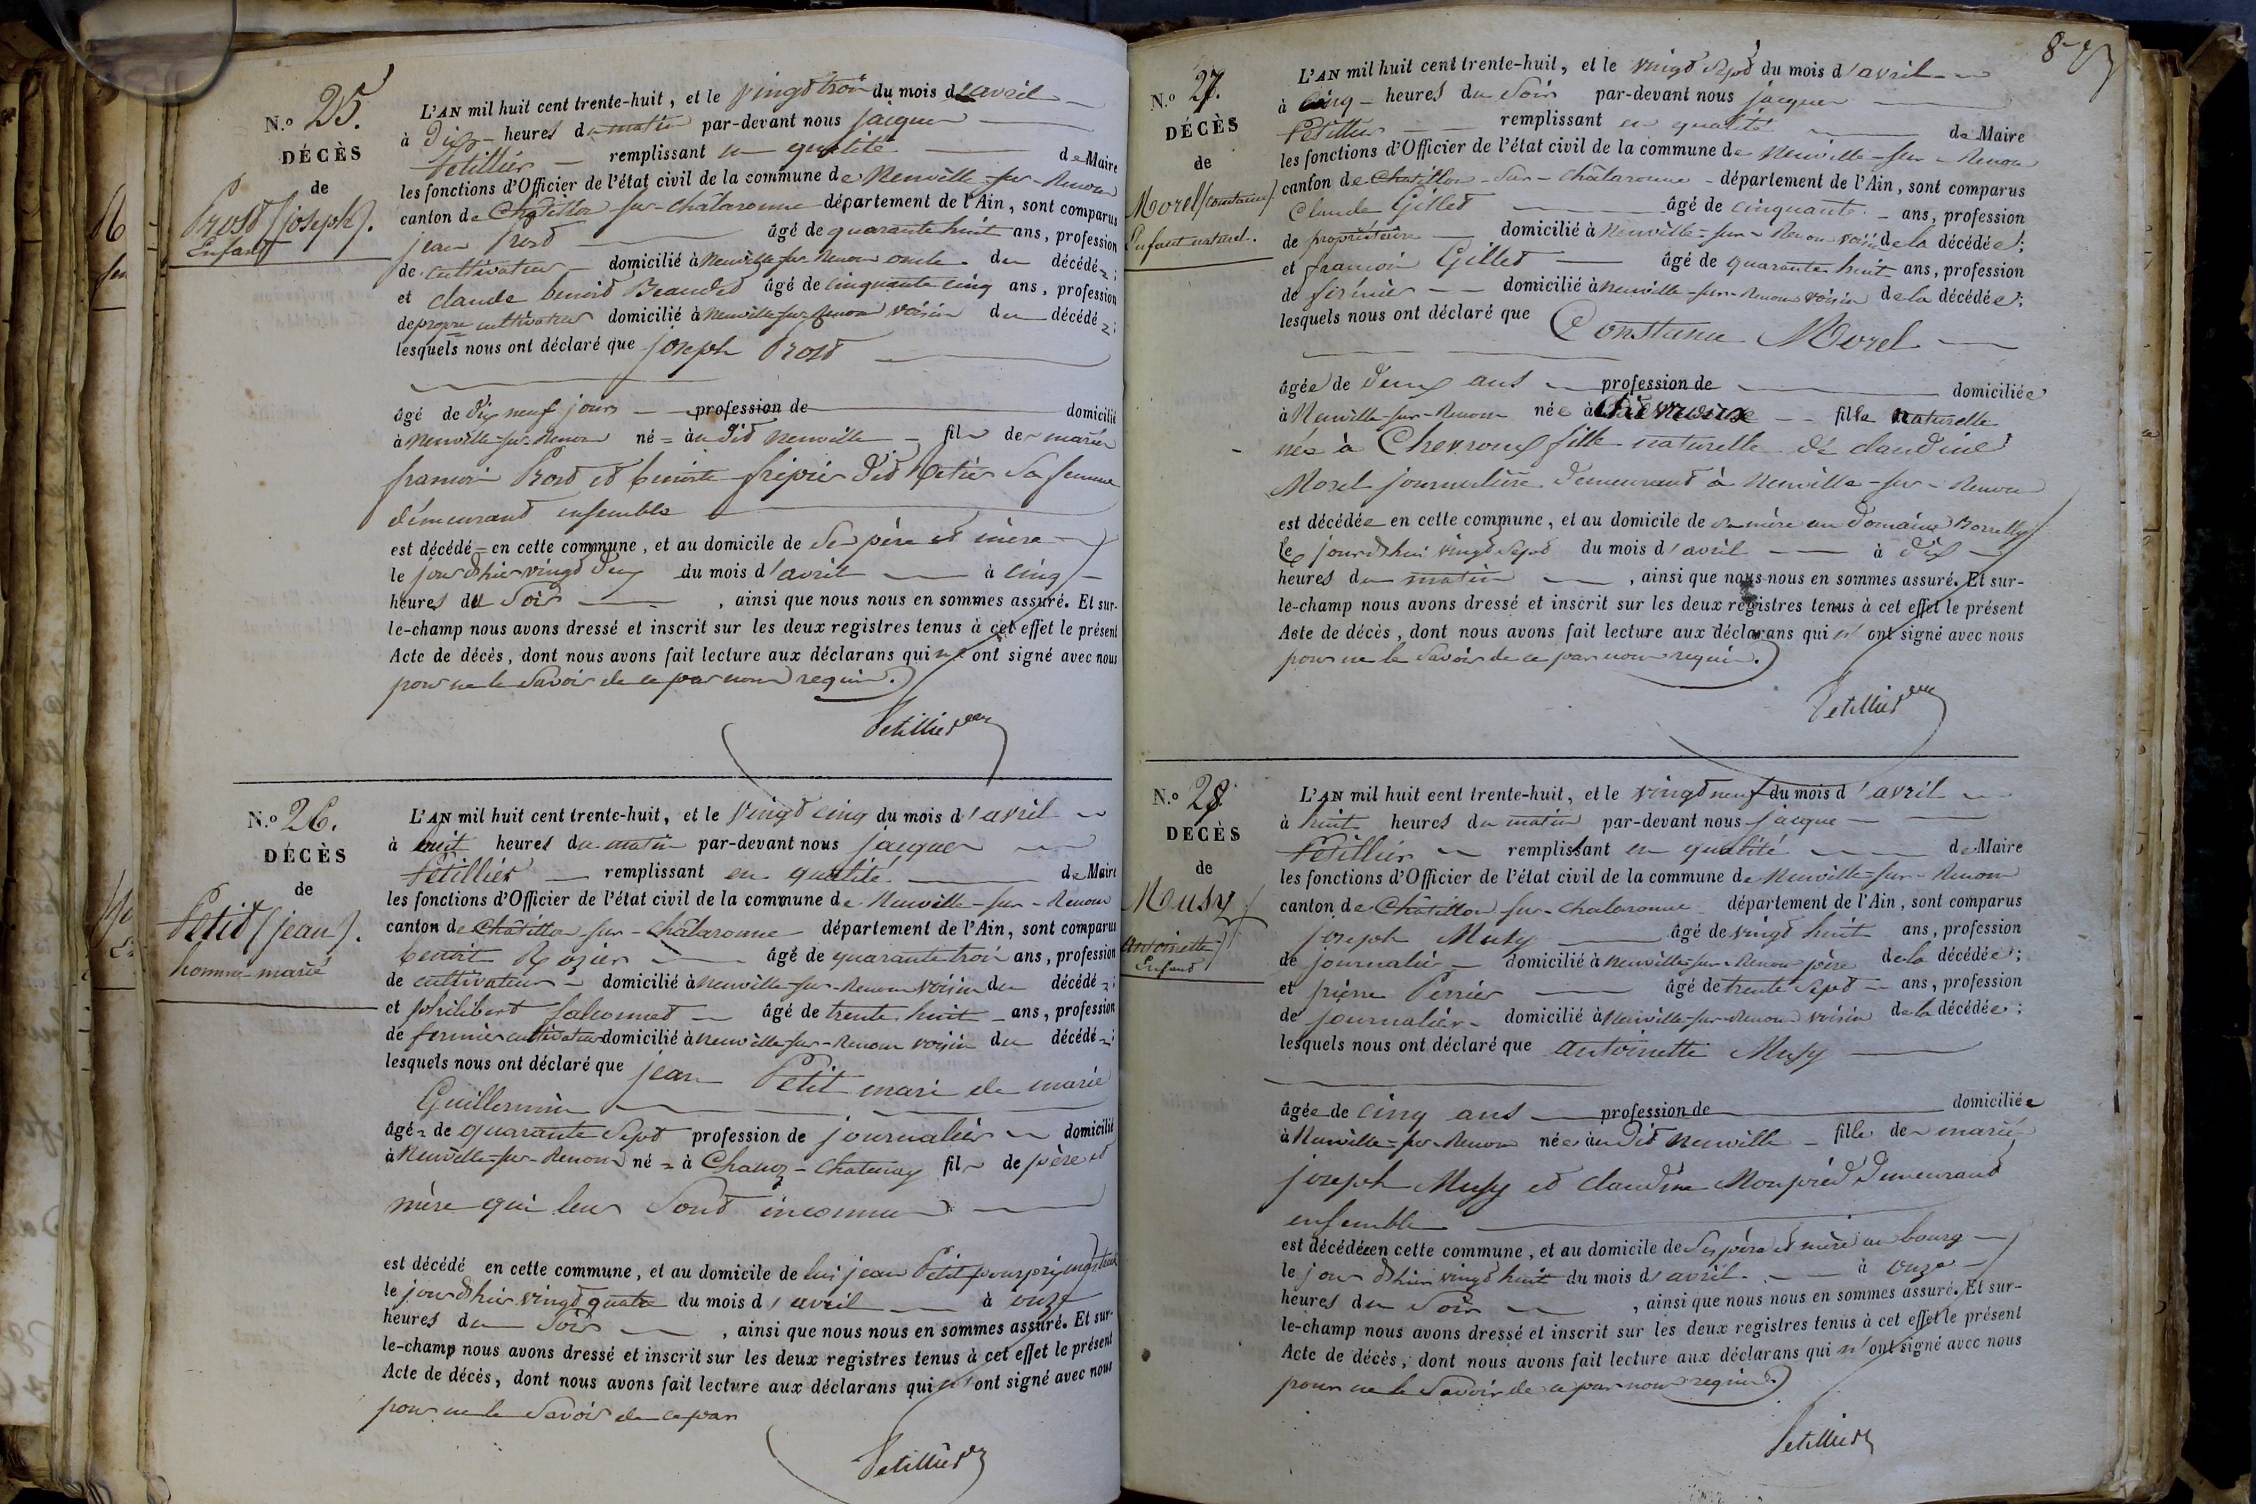 N.o 25.
DÉCÈS
de
Prost (joseph).
Enfant
L'AN mil huit cent trente-huit, et le vingt trois du mois d'avril
à dix heures du matin par-devant nous jacques
Petillier remplissant en qualité de Maire
les fonctions d'Officier de l'état civil de la commune de Neuville-sur-Renom
canton de Châtillon-sur-chalaronne département de l'Ain, sont comparus
jean Prost âgé de quarante huit ans, profession
de cultivateur domicilié à Neuville-sur-Renom oncle du décédé;
et claude benoit Beaudet âgé de cinquante cinq ans, profession
de propre cultivateur domicilié à Neuville-sur-Renom voisin du décédé;
lesquels nous ont déclaré que joseph Prost
âgé de dix neuf jours profession de domicilié
à Neuville-sur-Renom né à dit neuville fils de mariés
francois Prost et benoite fripier dit sa femme
demeurant ensemble
est décédé en cette commune, et au domicile de ses père et mère
le jour d'hier vingt deux du mois d'avril à cinq
heures du soir, ainsi que nous nous en sommes assuré. Et sur-
le-champ nous avons dressé et inscrit sur les deux registres tenus à cet effet le présent
Acte de décès, dont nous avons fait lecture aux déclarans qui n'ont signé avec nous
pour ne le savoir de ce par nous requis.
Petillier
N.o 26.
DÉCÈS
de
Petit (jean).
homme marié
L'AN mil huit cent trente-huit, et le vingt cinq du mois d'avril
à huit heures du matin par-devant nous jacques
Petillier remplissant en qualité de Maire
les fonctions d'Officier de l'état civil de la commune de Neuville-sur-Renom
canton de Châtillon-sur-Chalaronne département de l'Ain, sont comparus
benoit Rozier âgé de quarante trois ans, profession
de cultivateur domicilié à Neuville-sur-Renom voisin du décédé;
et philibert falconnet âgé de trente huit ans, profession
de fermier cultivateur domicilié à Neuville-sur-Renom voisin du décédé;
lesquels nous ont déclaré que jean Petit mari de marie
Guillermin
âgé de quarante sept profession de journalier domicilié
à Neuville-sur-Renom né à Chanoz-Chatenay fils de père et
mère qui leur sont inconnus
est décédé en cette commune, et au domicile de lui jean Petit
le jour d'hier vingt quatre du mois d'avril à onze
heures du soir, ainsi que nous nous en sommes assuré. Et sur-
le-champ nous avons dressé et inscrit sur les deux registres tenus à cet effet le présent
Acte de décès, dont nous avons fait lecture aux déclarans qui n'ont signé avec nous
pour ne le savoir de ce par
Petillier
87
N.o 27.
DÉCÈS
de
Morel (constance)
Enfant naturel.
L'AN mil huit cent trente-huit, et le vingt sept du mois d'avril
à cinq heures du soir par-devant nous jacques
Petillier remplissant en qualité de Maire
les fonctions d'Officier de l'état civil de la commune de Neuville-sur-Renom
canton de Chatillon-sur-Châlaronne département de l'Ain, sont comparus
Claude Gillet âgé de cinquante ans, profession
de propriétaire domicilié à Neuville-sur-Renom voisin de la décédée;
et francois Gillet âgé de quarante huit ans, profession
de domicilié à neuville-sur-Renom voisin de la décédée;
lesquels nous ont déclaré que Constance Morel
âgée de deux ans profession de domiciliée
à Neuville-sur-Renom née à Chevroux fille naturelle
née à Chevroux fille naturelle de claudine
Morel journalière demeurant à Neuville-sur-Renom
est décédée en cette commune, et au domicile de sa mère au domaine
le jourd'hui vingt sept du mois d'avril à dix
heures du matin, ainsi que nous nous en sommes assuré. Et sur-
le-champ nous avons dressé et inscrit sur les deux registres tenus à cet effet le présent
Acte de décès, dont nous avons fait lecture aux déclarans qui n'ont signé avec nous
pour ne le savoir de ce par nous requis.
Petillier
N.o 28.
DÉCÈS
de
Musy
Antoinette
Enfant
L'AN mil huit cent trente-huit, et le vingt neuf du mois d'avril
à huit heures du matin par-devant nous jacque
Petillier remplissant en qualité de Maire
les fonctions d'Officier de l'état civil de la commune de Neuville-sur-Renom
canton de Châtillon-sur-chalaronne département de l'Ain, sont comparus
joseph Musy âgé de vingt huit ans, profession
de journalier domicilié à Neuville-sur-Renom père de la décédée;
et pierre Perrier âgé de trente sept ans, profession
de journalier domicilié à Neuville-sur-Renom voisin de la décédée;
lesquels nous ont déclaré que antoinette Musy
âgée de cinq ans profession de domiciliée
à Neuville-sur-Renom née au dit Neuville fille de mariés
joseph Musy et claudine Monpied demeurant
ensemble
est décédée en cette commune, et au domicile de ses père et mère au bourg
le jour d'hier vingt huit du mois d'avril à onze
heures du soir, ainsi que nous nous en sommes assuré. Et sur-
le-champ nous avons dressé et inscrit sur les deux registres tenus à cet effet le présent
Acte de décès, dont nous avons fait lecture aux déclarans qui n'ont signé avec nous
pour ne le savoir de ce par nous requis.
Petillier